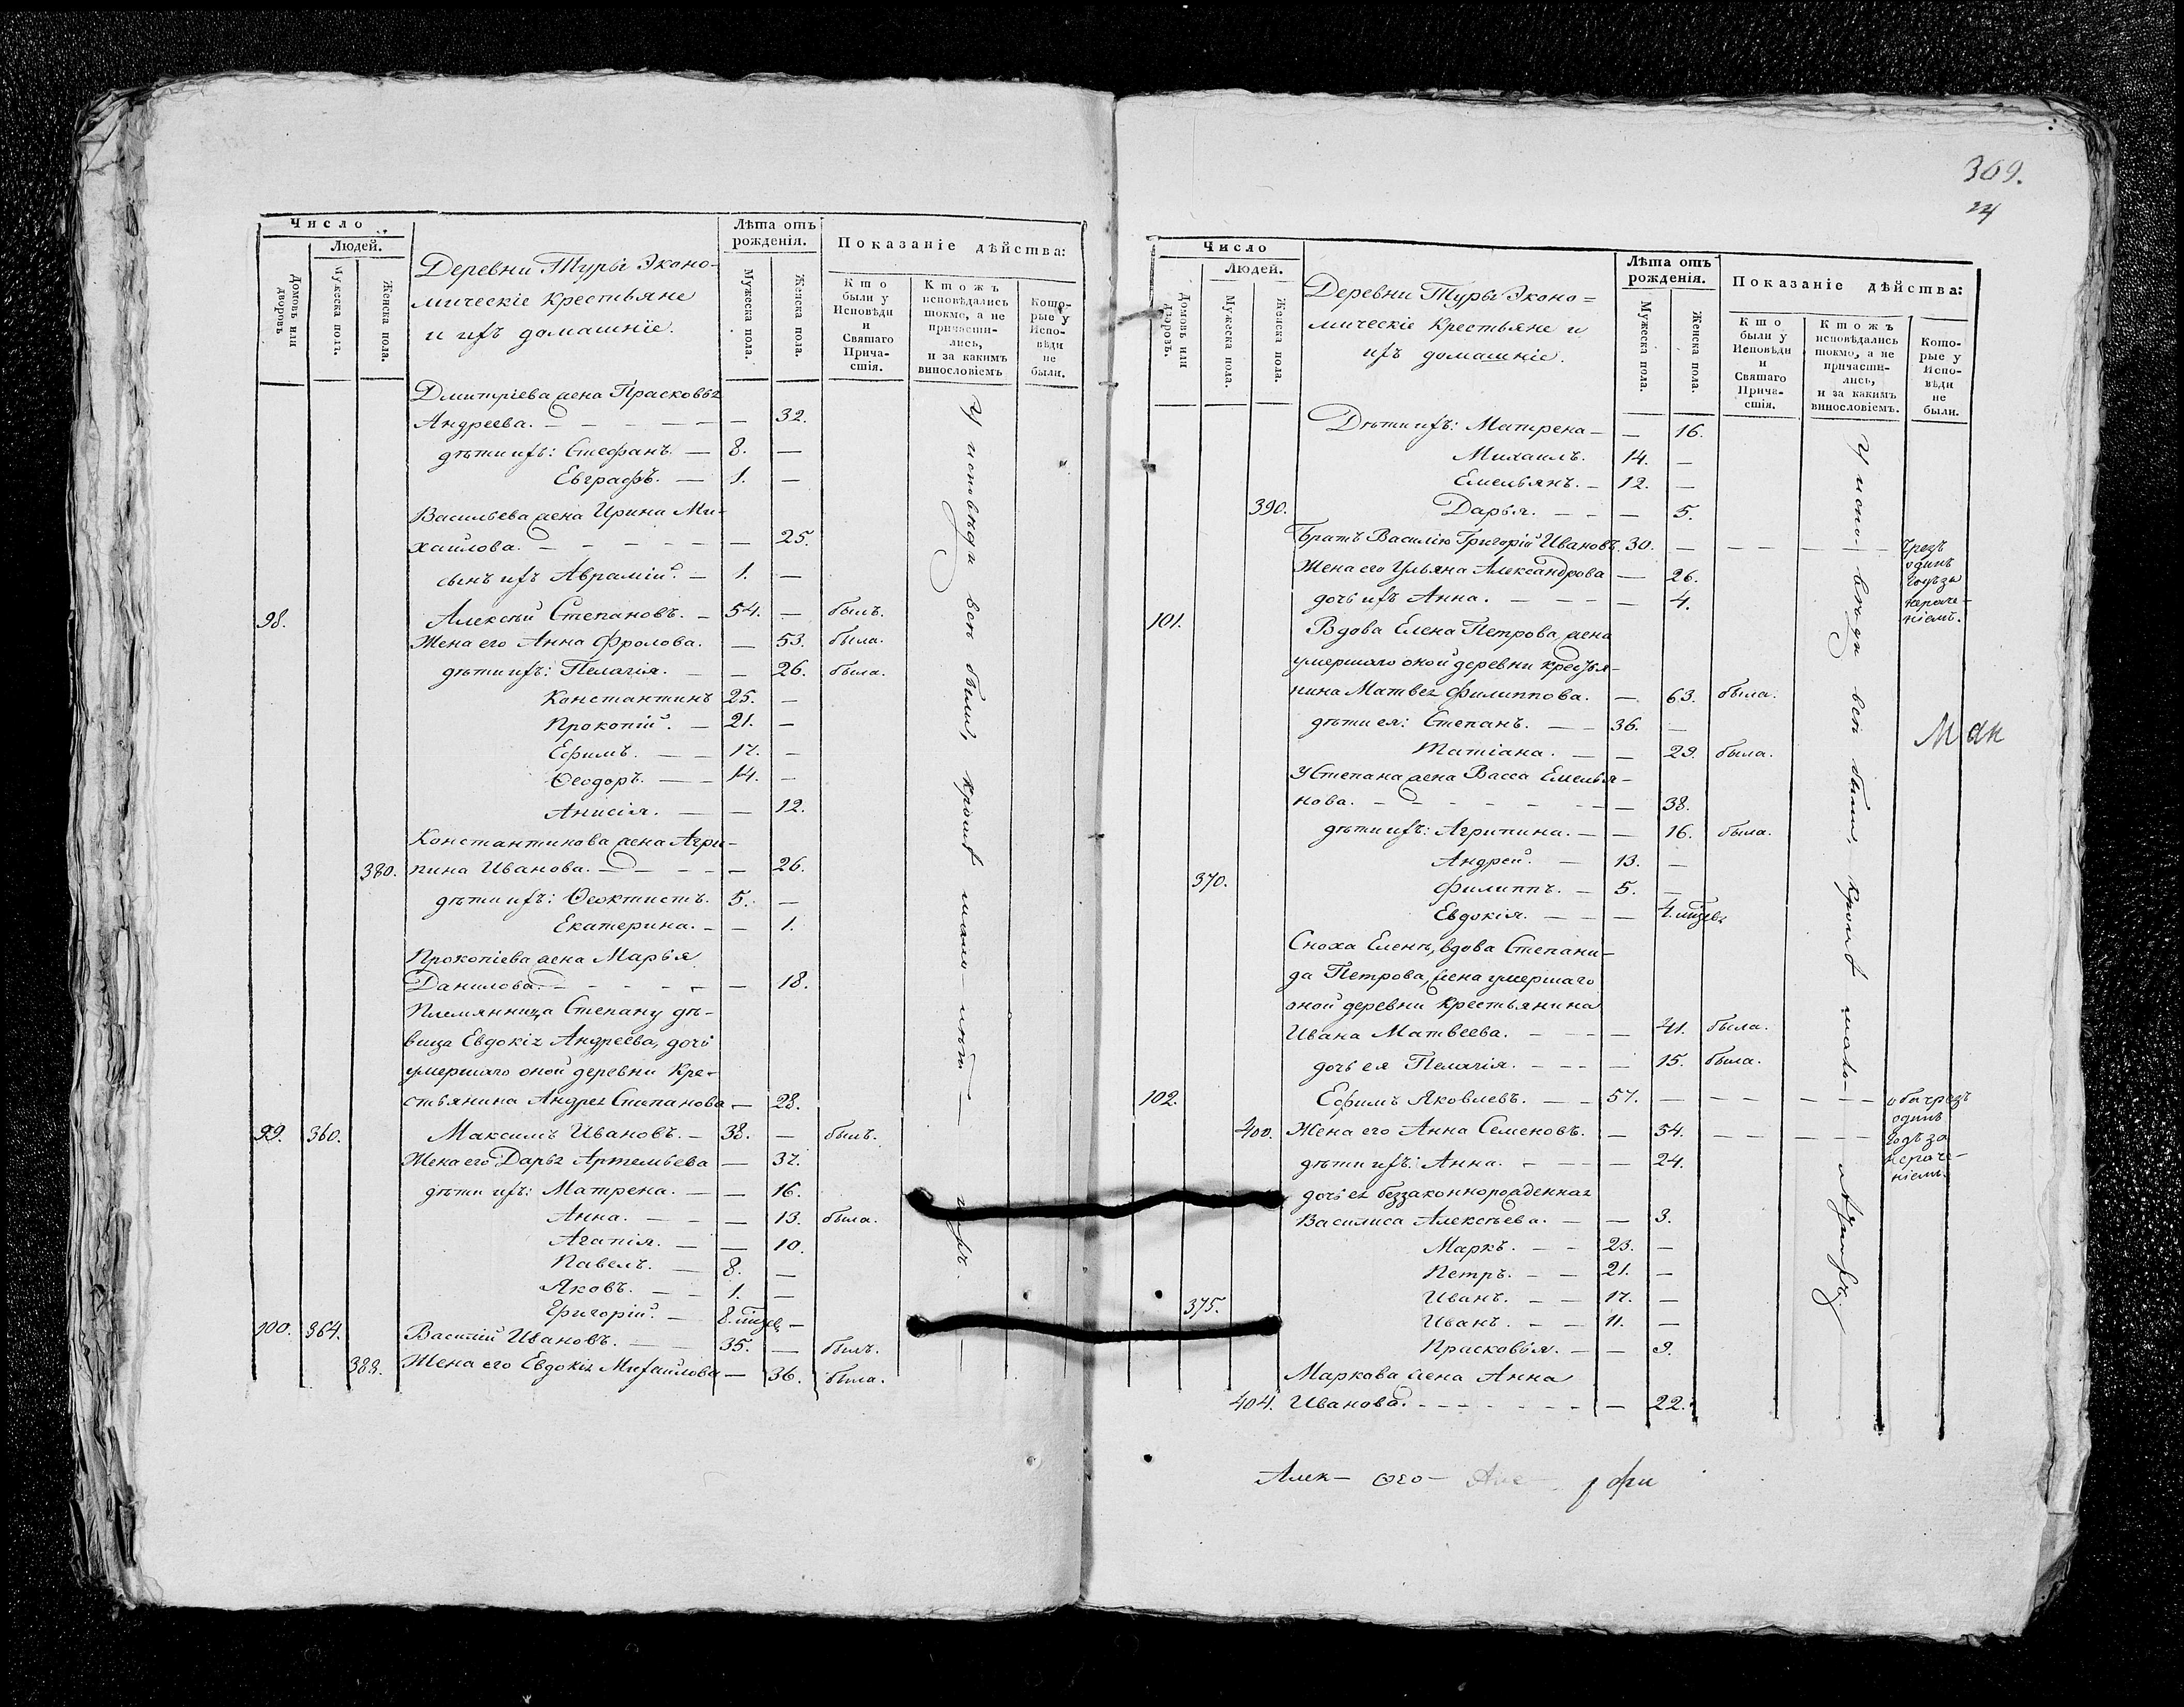 Число
Людей.
Домовъ или дворовъ
Мужеска пола.
Женска пола.
Деревни Туры Эконо-
мическіе крестьяне
и ихъ домашніе.
Лѣта отъ
рожденія.
Мужеска пола.
Женска пола.
Показаніе дѣйства:
Кто
были у
Исповѣди
и
Святаго
Прича-
стія.
Ктожъ
исповѣдались
токмо, а не
причасти-
лись,
и за какимъ
винословіемъ
Кото-
рые у
Испо-
вѣди
не
были.
Дмитріева жена Прасковья
Андреева. — — 32.
дѣти ихъ: Стефанъ. — 8. —
Евграфъ. — 1. —
Васильева жена Ирина Ми-
хаилова. — — 25.
сынъ ихъ Аврамій. — 1. —
98. Алексѣй Степановъ. — 54. — былъ.
Жена его Анна Фролова. — 53. была.
дѣти ихъ: Пелагія. — — 26. была.
Константинъ 25. —
Прокопій. — 21. —
Ефимъ. — — 17. —
Ѳеодоръ. — — 14. —
Анисія. — — 12.
Константинова жена Агри-
380. пина Иванова. — — 26.
дѣти ихъ: Ѳеоктистъ. 5. —
Екатерина. — — 1.
Прокопіева жена Марья
Данилова. — — 18.
Племянница Степану дѣ-
вица Евдокія Андреева, дочь
умершаго оной деревни кре-
стьянина Андрея Степанова — 28.
99. 360. Максимъ Ивановъ. — 38. — былъ.
Жена его Дарья Артемьева — 37.
дѣти ихъ: Матрена. — — 16.
Анна. — — 13. была.
Агапія. — — 10.
Павелъ. — 8. —
Яковъ. — — 1. —
Григорій. — 8. мцев —
100. 364. Василій Ивановъ. — 35. — былъ.
388. Жена его Евдокія Михайлова — 36. была.
У исповѣди всѣ были, кромѣ
369.
24
Число
Людей.
Домовъ или дворовъ.
Мужеска пола.
Женска пола.
Деревни Туры Эконо=
мическіе крестьяне и
ихъ домашніе.
Лѣта отъ
рожденія.
Мужеска пола.
Женска пола.
Показаніе дѣйства:
Кто
были у
Исповѣди
и
Святаго
Прича-
стія.
Ктожъ
исповѣдались
токмо, а не
причасти-
лись,
и за какимъ
винословіемъ.
Кото-
рые у
Испо-
вѣди
не
были.
Дѣти ихъ: Матрена — — 16.
Михаилъ. 14. —
Емельянъ. — 12. —
390. Дарья. — — — 5.
Братъ Василію Григорій Ивановъ. 30. — — — — — чрезъ
одинъ
годъ за
нераче-
ніемъ.
Жена его Ульяна Александрова — 26.
дочь ихъ Анна. — — — 4.
101. Вдова Елена Петрова, жена
умершаго оной деревни крестья-
нина Матвея Филиппова. — 63. была.
дѣти ея: Степанъ. — — 36. —
Татіана. — — 29. была.
У Степана жена Васса Емелья-
нова. — — 38.
дѣти ихъ: Агрипина. — — 16. была.
Андрей. — 13. —
370. Филиппъ. — 5. —
Евдокія. — — — 4. мцев
Сноха Еленѣ, вдова Степани-
да Петрова, жена умершаго
оной деревни крестьянина
Ивана Матвеева. — — — 41. была.
дочь ея Пелагія. — — — 15. была.
102. Ефимъ Яковлевъ. — — 57. — — — — — оба чрезъ
одинъ
годъ за
нераче-
ніемъ.
400. Жена его Анна Семеновъ. — 54. — — — —
дѣти ихъ: Анна. — — — 24.
дочь ея беззаконнорожденная
Василиса Алексѣева. — — 3.
Маркъ. — — 23. —
Петръ. — — 21. —
375. Иванъ. — — 17. —
Иванъ. — — 11. —
Прасковія. — — 9.
Маркова жена Анна
404. Иванова. — — 22.
У испо- вѣди всѣ были, кромѣ
Алек- ѳео-